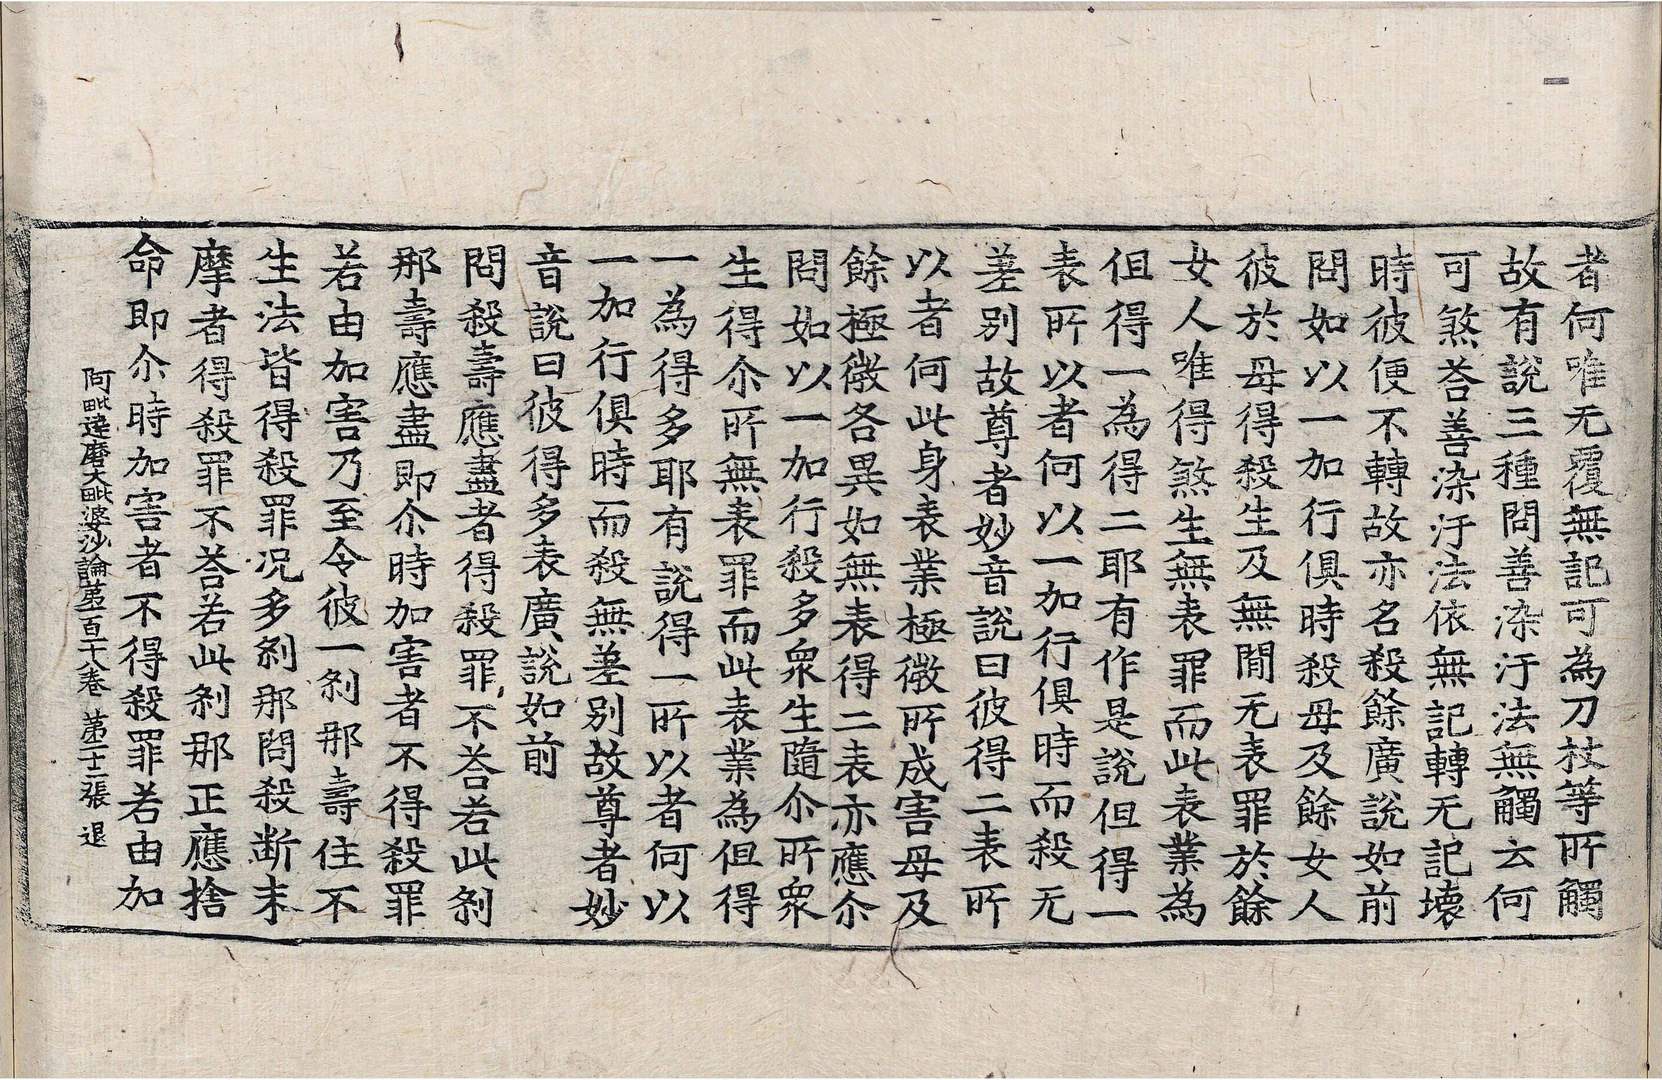 者何唯无覆無記可為刀杖等所觸
故有說三種問善染汙法無觸云何
可煞荅善染汙法依無記轉无記壞
時彼便不轉故亦名殺餘廣說如前
問如以一加行俱時殺母及餘女人
彼於母得殺生及無間无表罪於餘
女人唯得煞生無表罪而此表業為
但得一為得二耶有作是說但得一
表所以者何以一加行俱時而殺无
差別故尊者妙音說曰彼得二表所
以者何此身表業極微所成害母及
餘極微各異如無表得二表亦應尒
問如以一加行殺多衆生隨尒所衆
生得尒所無表罪而此表業為但得
一為得多耶有說得一所以者何以
一加行俱時而殺無差別故尊者妙
音說曰彼得多表廣說如前
問殺壽應盡者得殺罪不荅若此刹
那壽應盡即尒時加害者不得殺罪
若由加害乃至令彼一刹那壽住不
生法皆得殺罪况多刹那問殺断末
摩者得殺罪不荅若此刹那正應捨
命即尒時加害者不得殺罪若由加
阿毗達磨大毗婆沙論第百十八卷 第二十二張 退